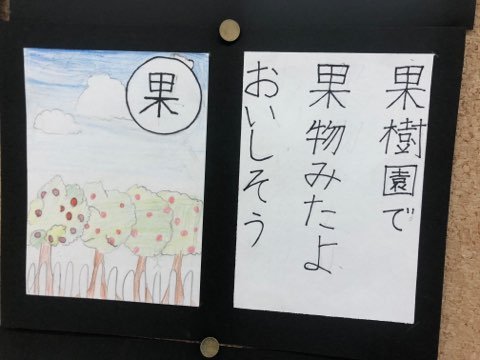 果樹園で
果物みたよ
おいしそう
果